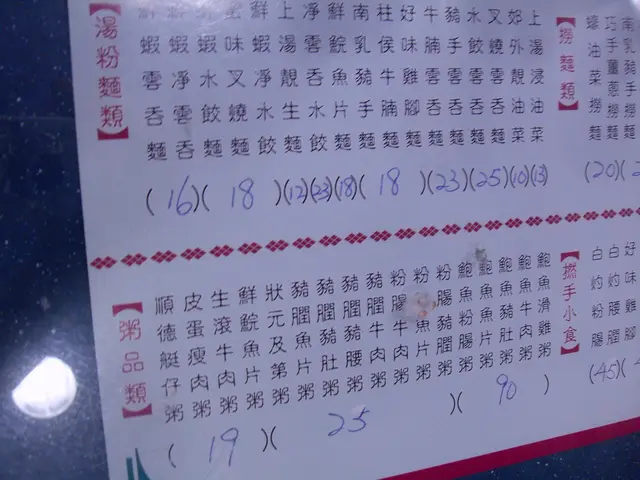 【湯粉麵類】
鮮蝦雲吞麵
鮮蝦淨雲吞
鮮蝦水餃麵
蜜味叉燒麵
鮮蝦淨水餃
上湯靚生麵
淨雲吞水餃
鮮鯇魚片麵
南乳豬手麵
柱侯牛腩麵
好味雞腳麵
牛腩雲吞麵
豬手雲吞麵
水餃雲吞麵
叉燒雲吞麵
郊外靚油菜
上湯浸油菜
(16)(18)(12)(23)(18)(18)(23)(25)(10)(13)
【撈麵類】
蠔油菜撈麵
巧手薑蔥撈麵
南乳豬手撈麵
(20)
【粥品類】
順德艇仔粥
皮蛋瘦肉粥
生滾牛肉粥
鮮鯇魚片粥
狀元及第粥
豬膶魚片粥
豬膶豬肚粥
豬膶豬腰粥
豬膶牛肉粥
粉腸牛肉粥
粉魚片粥
粉腸豬膶粥
鮑魚腸粥
鮑魚魚片粥
鮑魚豬肚粥
鮑魚牛肉粥
鮑魚滑雞粥
(19)(25)(90)
【撚手小食】
白灼粉腸
白灼腰膶
好味雞腳
(45)